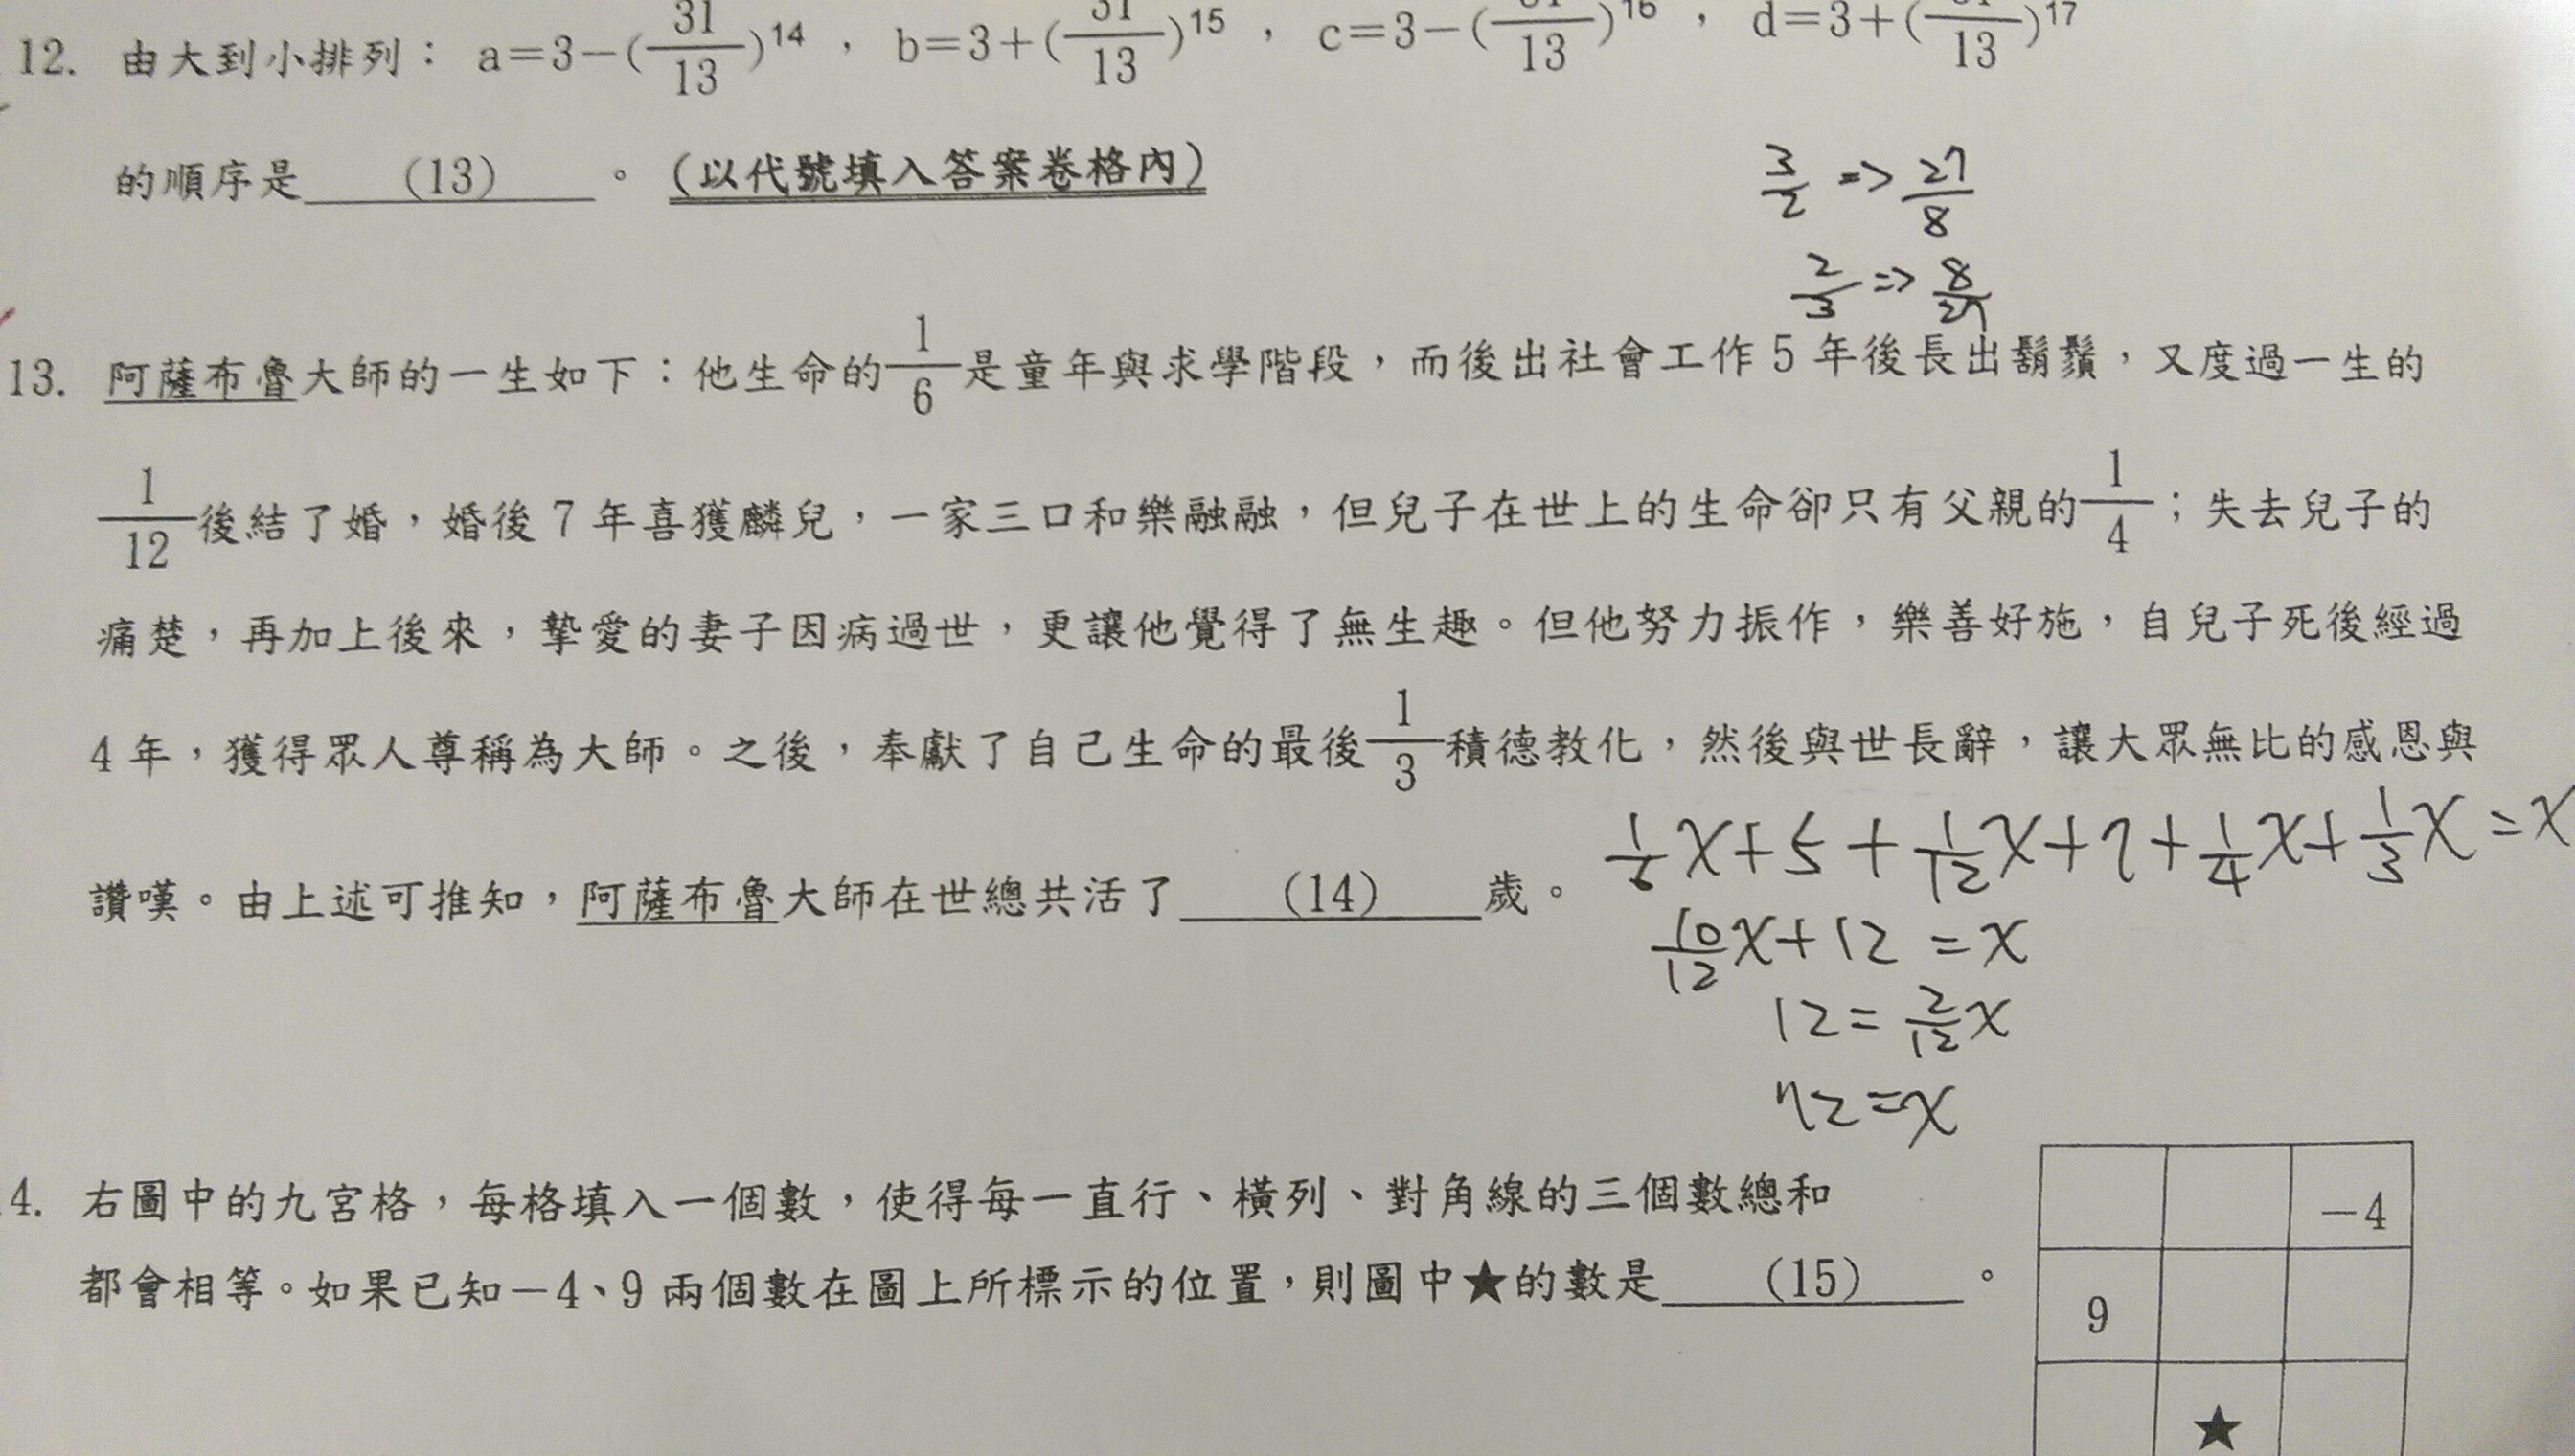 12. 由大到小排列： a＝3－(31/13)^14 ， b＝3＋(31/13)^15 ， c＝3－(31/13)^16 ， d＝3＋(31/13)^17
的順序是 (13) 。 (以代號填入答案卷格內)
3/2 => 27/8
2/3 => 8/27
13. 阿薩布魯大師的一生如下：他生命的1/6是童年與求學階段，而後出社會工作5年後長出鬍鬚，又度過一生的
1/12後結了婚，婚後7年喜獲麟兒，一家三口和樂融融，但兒子在世上的生命卻只有父親的1/4；失去兒子的
痛楚，再加上後來，摯愛的妻子因病過世，更讓他覺得了無生趣。但他努力振作，樂善好施，自兒子死後經過
4年，獲得眾人尊稱為大師。之後，奉獻了自己生命的最後1/3積德教化，然後與世長辭，讓大眾無比的感恩與
讚嘆。由上述可推知，阿薩布魯大師在世總共活了 (14) 歲。
1/6x+5+1/12x+7+1/4x+1/3x=x
10/12x+12=x
12=2/12x
72=x
4. 右圖中的九宮格，每格填入一個數，使得每一直行、橫列、對角線的三個數總和
都會相等。如果已知－4、9兩個數在圖上所標示的位置，則圖中★的數是 (15) 。
－4
9
★